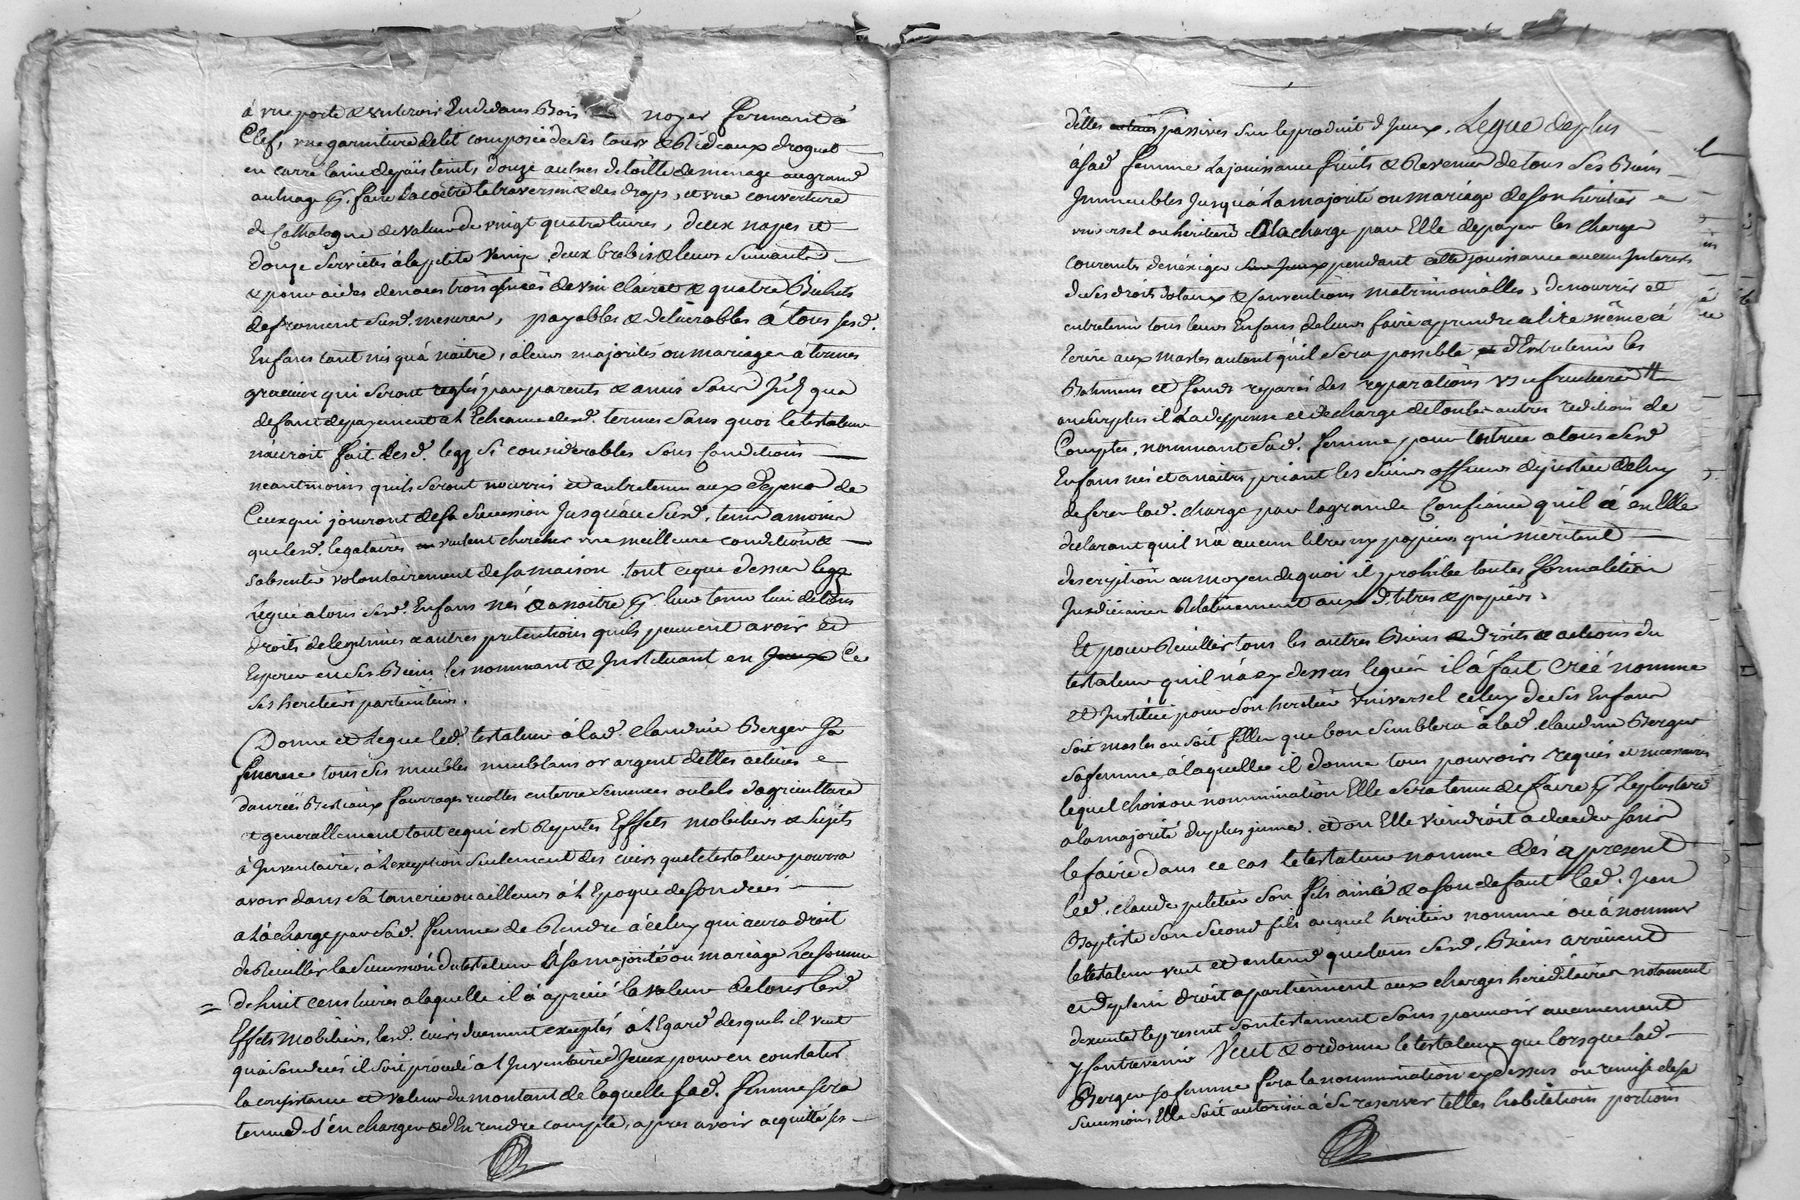 à une porte & un tiroir Lud. dans Bois noyer fermant à
Clef, une garniture de lit composée de ses tours & Rideaux droguet
en carré laine de païs teint, douze aulnes de toille de menage au grand
aulnage p.r faire la coëtre le traversin & des draps, et une couverture
de Cathalogne de valeur de vingt quatre livres, deux napes et
douze Servietes à la petite Venise, deux brebis & leurs suivants
& pour aider de noces trois de vin clairet & quatre Bichets
de froment susd. mesure, payables & délivrables à tous sesd.
Enfans tant nés qu'à naitre, à leurs majorités ou mariages à termes
gracieux qui seront reglés par parents & amis sans qua
defaut de payement à l'Echeance desd. termes sans quoi le testateur
n'auroit fait lesd. legz si considerables sous Conditions
neantmoins quils seront nourris et entretenus aux depens de
Ceux qui jouiront de sa succession jusquau susd. tems a moins
que lesd. legataires veulent chercher une meilleure condition &
s'absenter volontairement de sa maison tout ce que dessus legz
legué a tous sesd. Enfans nés & a naitre p.r leur tenir lieu de tous
droits de legitimes & autres pretentions quils peuvent avoir et
Esperer en ses Biens les nommant & Instituant en Ce
ses heritiers particuliers.
Donne et Legue led. testateur à lad. Claudine Berger sa
femme tous ses meubles meublans or argent dettes actives
danrées Bestiaux fourrages recoltes en terre semences outils d'agriculture
& generallement tout ce qui est Reputés Effets mobiliers & sujets
à Inventaire, à l'exception seulement des cuirs que le testateur poura
avoir dans sa tannerie ou ailleurs à l'Epoque de son deces
a la charge par sad. femme de Rendre à celuy qui aura droit
de Recuillir la succession du testateur à sa majorité ou mariage la somme
= de huit cens livres a laquelle il a aprécié la valeur de tous lesd.
Effets mobiliers, lesd. cuirs duement exceptés à l'Egard desquels il veut
qu'à son deces il soit procedé a l'Inventaire d'Iceux pour en constater
la consistance et valeur du montant de laquelle sad. femme sera
tenue de s'en charger & d'En rendre compte, apres avoir acquitté ses
dettes passives sur le produit d'Iceux. Legue de plus
à sad. femme la jouissance fruits & Revenus de tous ses Biens
Immeubles jusqu'à la majorité ou mariage de son heritier
universel ou heritiere à la charge par Elle de payer les charges
courantes de n'exiger pendant cette jouissance aucun Interets
de ses droits dotaux & Conventions matrimonialles, de nourrir et
entretenir tous leurs Enfans de leurs faire aprendre a lire même à
Ecrire aux masles autant quil sera possible d'Entretenir les
Batimens et fonds reparés des reparations usufructuaires
au surplus il La dispense et decharge de toutes autres redition de
Comptes, nommant sad. femme pour tutrice a tous sesd.
Enfans nés et a naitre, priant les sieurs officiers de justice de luy
deferer lad. charge par la grande Confiance qu'il a en Elle
declarant quil n'a aucun titres ny papiers qui meritent
description au moyen de quoi il prohibe toutes formalités
Judiciaires Relativement aux d. titres & papiers.
Et pour Recuillir tous les autres Biens droits & actions du
testateur qu'il n'a cy dessus legués il a fait créé nommé
et Institué pour son heritier universel celuy de ses Enfans
soit masles ou soit filles que bon semblera à lad. Claudine Berger
sa femme, à laquelle il donne tous pouvoirs requis et necessaires
lequel choix ou nommination Elle sera tenue de faire p.r le plus tard
a la majorité du plus jeune. et ou Elle viendroit a deceder sans
le faire dans ce cas le testateur nomme dés à present
led. Claude peletier son fils ainé & a son defaut led. Jean
Baptiste son second fils auquel heritier nommé ou à nommer
le testateur veut et entend que tous sesd. Biens arrivent
et de plein droit apartiennent aux charges hereditaires notament
dexecuter le present son testament sans pouvoir aucunement
y Contrevenir Veut & ordonne le testateur que lorsque lad.
Berger sa femme fera la nommination cy dessus ou remise de sa
succession, Elle soit autorisée à se reserver telles habitations portions